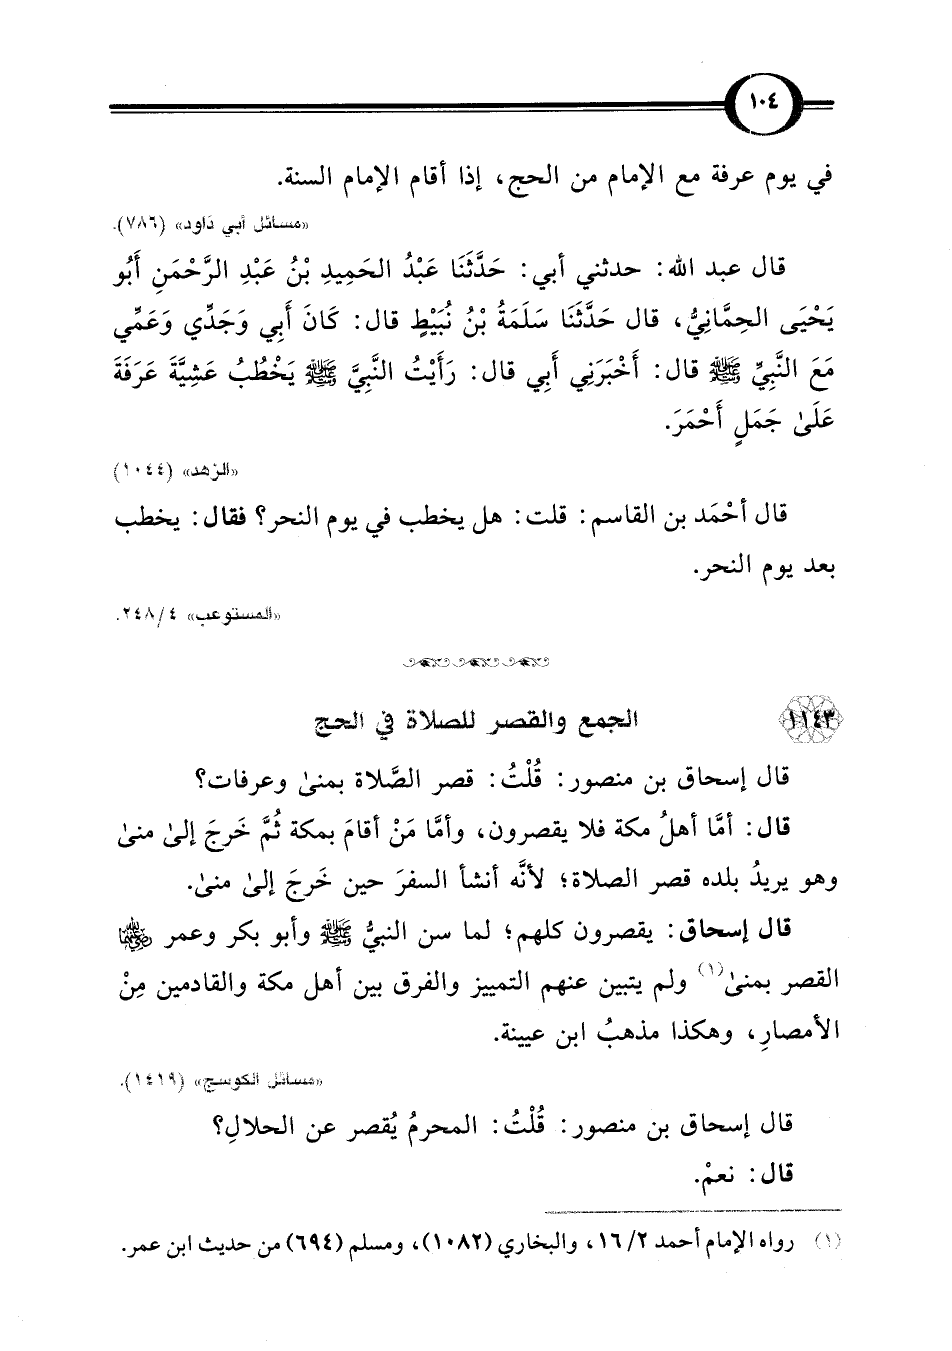 ١٠٤
في يوم عرفة مع الإمام من الحج، إذا أقام الإمام السنة.
«مسائل أبي داود» (٧٨٦).
قال عبد الله: حدثني أبي: حَدَّثَنَا عَبْدُ الحَمِيدِ بْنُ عَبْدِ الرَّحْمَنِ أَبُو
يَحْيَى الحِمَّانِيُّ، قال حَدَّثَنَا سَلَمَةُ بْنُ نُبَيْطٍ قال: كَانَ أَبِي وَجَدِّي وَعَمِّي
مَعَ النَّبِيِّ ﷺ قال: أَخْبَرَنِي أَبِي قال: رَأَيْتُ النَّبِيَّ ﷺ يَخْطُبُ عَشِيَّةَ عَرَفَةَ
عَلَىٰ جَمَلٍ أَحْمَرَ.
«الزهد» (١٠٤٤)
قال أحْمَد بن القاسم: قلت: هل يخطب في يوم النحر؟ فقال: يخطب
بعد يوم النحر.
«المستوعب» ٢٤٨/٤.
١١٤٣ الجمع والقصر للصلاة في الحج
قال إسحاق بن منصور: قُلْتُ: قصر الصَّلاة بمنىٰ وعرفات؟
قال: أمَّا أهلُ مكة فلا يقصرون، وأمَّا مَنْ أقامَ بمكة ثُمَّ خَرجَ إلىٰ منىٰ
وهو يريدُ بلده قصر الصلاة؛ لأنَّه أنشأ السفرَ حين خَرجَ إلىٰ منىٰ.
قال إسحاق: يقصرون كلهم؛ لما سن النبيُّ ﷺ وأبو بكر وعمر رضي الله عنهما
القصر بمنىٰ(١) ولم يتبين عنهم التمييز والفرق بين أهل مكة والقادمين مِنْ
الأمصارِ، وهكذا مذهبُ ابن عيينة.
«مسائل الكوسج» (١٤١٩).
قال إسحاق بن منصور: قُلْتُ: المحرمُ يُقصر عن الحلالِ؟
قال: نعمْ.
(١) رواه الإمام أحمد ١٦/٢، والبخاري (١٠٨٢)، ومسلم (٦٩٤) من حديث ابن عمر.